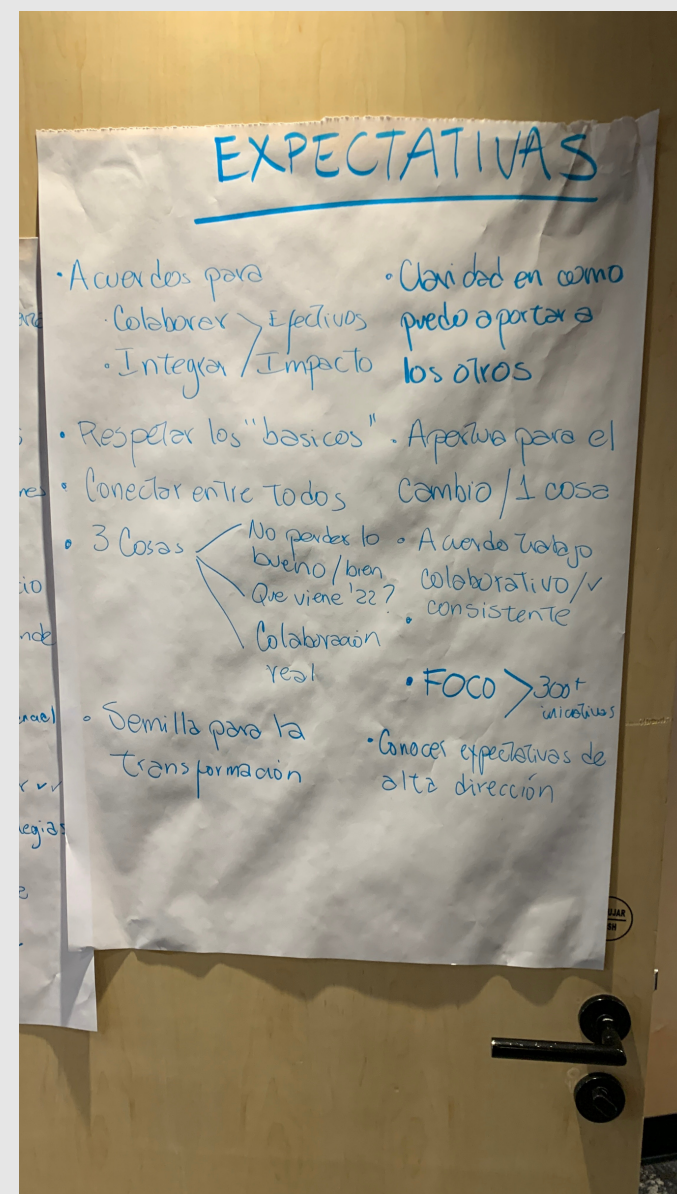 EXPECTATIVAS
• Acuerdos para
· Colaborar > Efectivos
• Integrar / Impacto
• Respetar los "basicos"
• Conectar entre Todos
• 3 Cosas
No perder lo
bueno/bien
Que viene '22?
Colaboración
real
• Semilla para la
transformación
• Claridad en como
puedo aportar a
los otros
• Apertura para el
cambio/1 cosa
• Acuerdo trabajo
colaborativo/✓
• consistente
• FOCO > 300+
iniciativas
• Conocer expectativas de
alta dirección
nes
cio
nde
egias
UJAR
SH